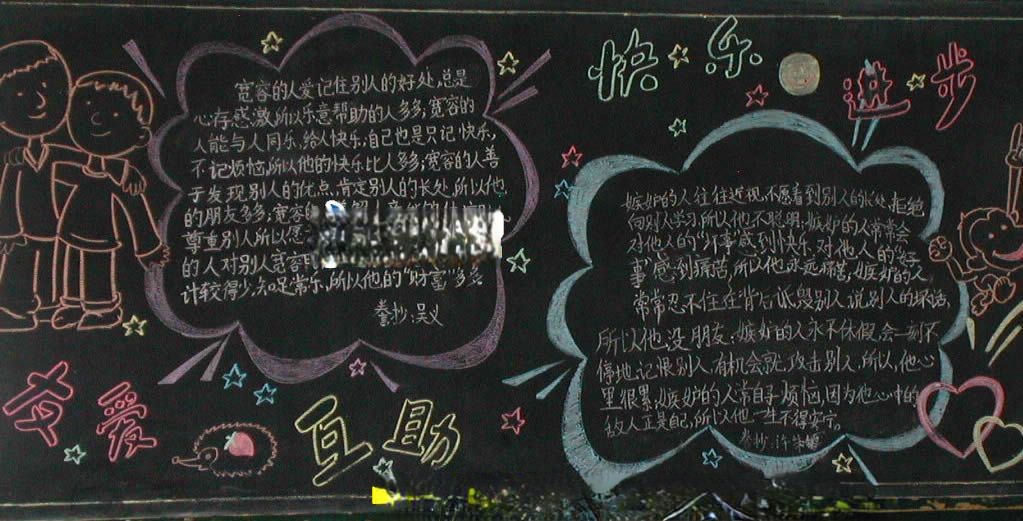 宽容的人爱记住别人的好处,总是
心存感激,所以乐意帮助的人多多;宽容的
人能与人同乐,给人快乐,自己也是只记快乐,
不记烦恼,所以他的快乐比人多多;宽容的人善
于发现别人的优点,肯定别人的长处,所以他
的朋友多多;宽容
尊重别人所以愿
的人对别人宽容
计较得少,知足常乐,所以他的“财富”多多。
誊抄:吴义
友爱
互助
快乐
进步
嫉妒的人往往近视,不愿看到别人的长处,拒绝
向别人学习,所以他不聪明;嫉妒的人常常会
对他人的“坏事”感到快乐,对他人的“好
事”感到痛苦,所以他永远痛苦;嫉妒的人
常常忍不住在背后诋毁别人,说别人的坏话,
所以他没朋友;嫉妒的人永不休假,会一刻不
停地记恨别人,有机会就攻击别人,所以,他心
里很累;嫉妒的人常自寻烦恼,因为他心中的
敌人正是自己,所以他一生不得安宁。
誊抄:许